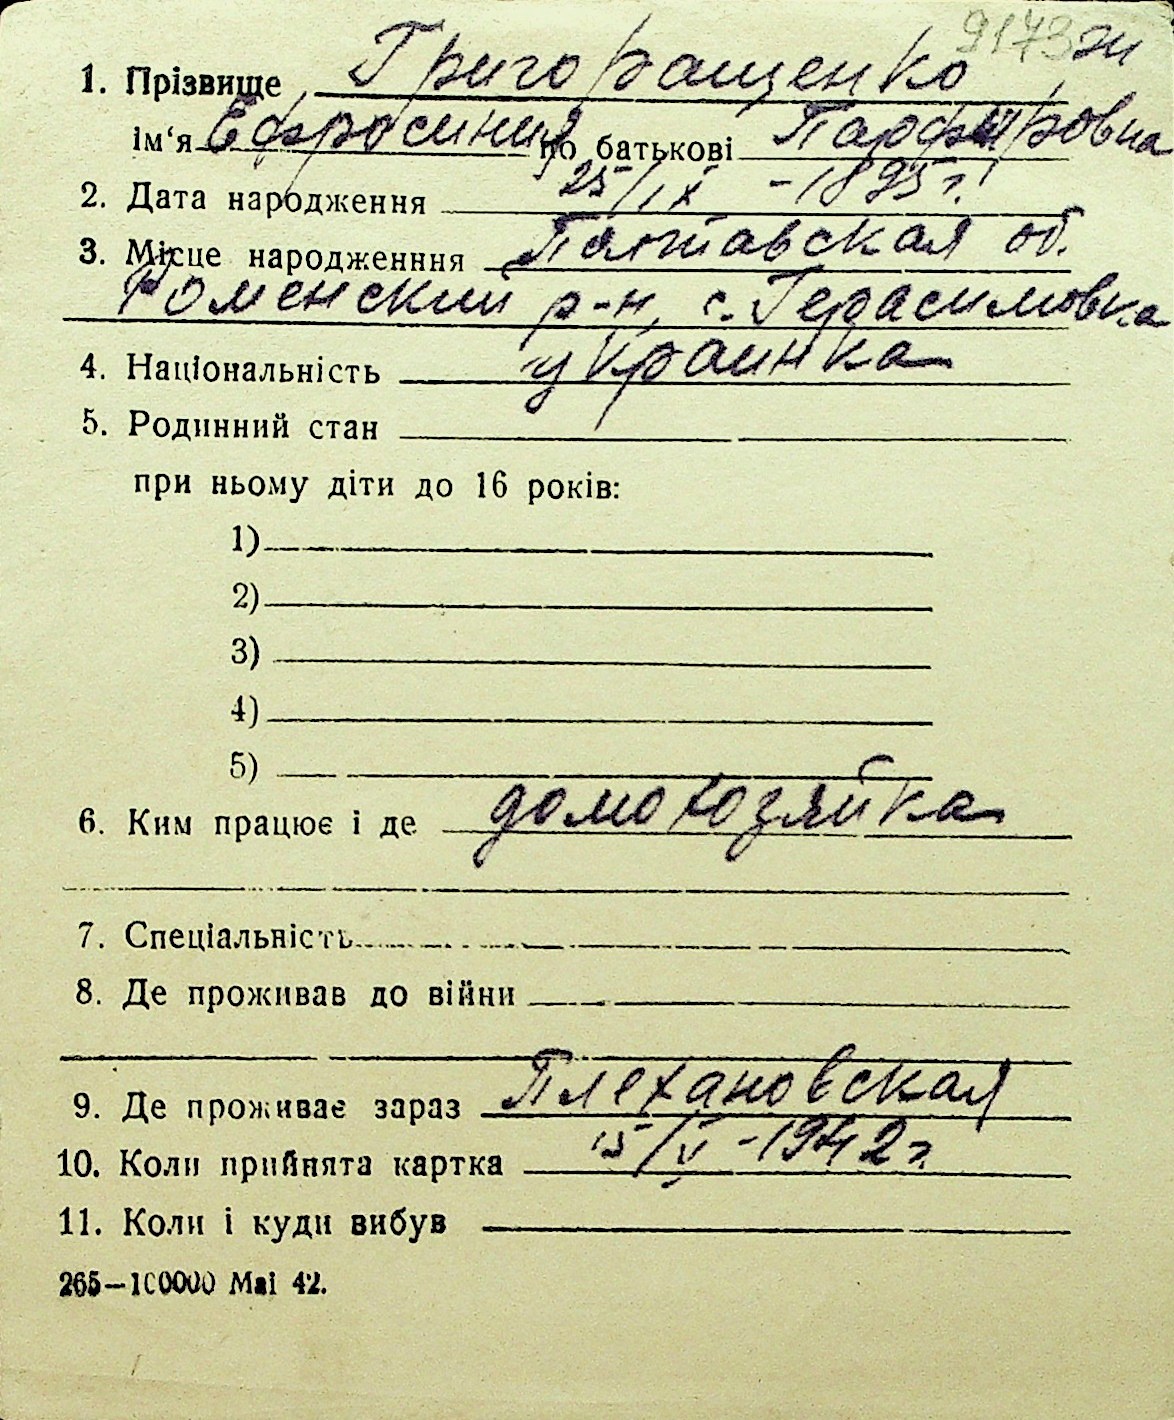 9173 эи
1. Прізвище Григоращенко
ім‘я Ефросиния по батькові Парфировна
2. Дата народження 25/IX -1895 г.
3. Місце народженння Полтавская об.
Роменский р-н, с. Герасимовка
4. Національність украинка
5. Родинний стан
при ньому діти до 16 років:
1)
2)
3)
4)
5)
6. Ким працює і де домохозяйка
7. Спеціальність
8. Де проживав до війни
9. Де проживає зараз Плехановская
10. Коли прийнята картка 15/V -1942 г.
11. Коли і куди вибув
265—100000 Маі 42.